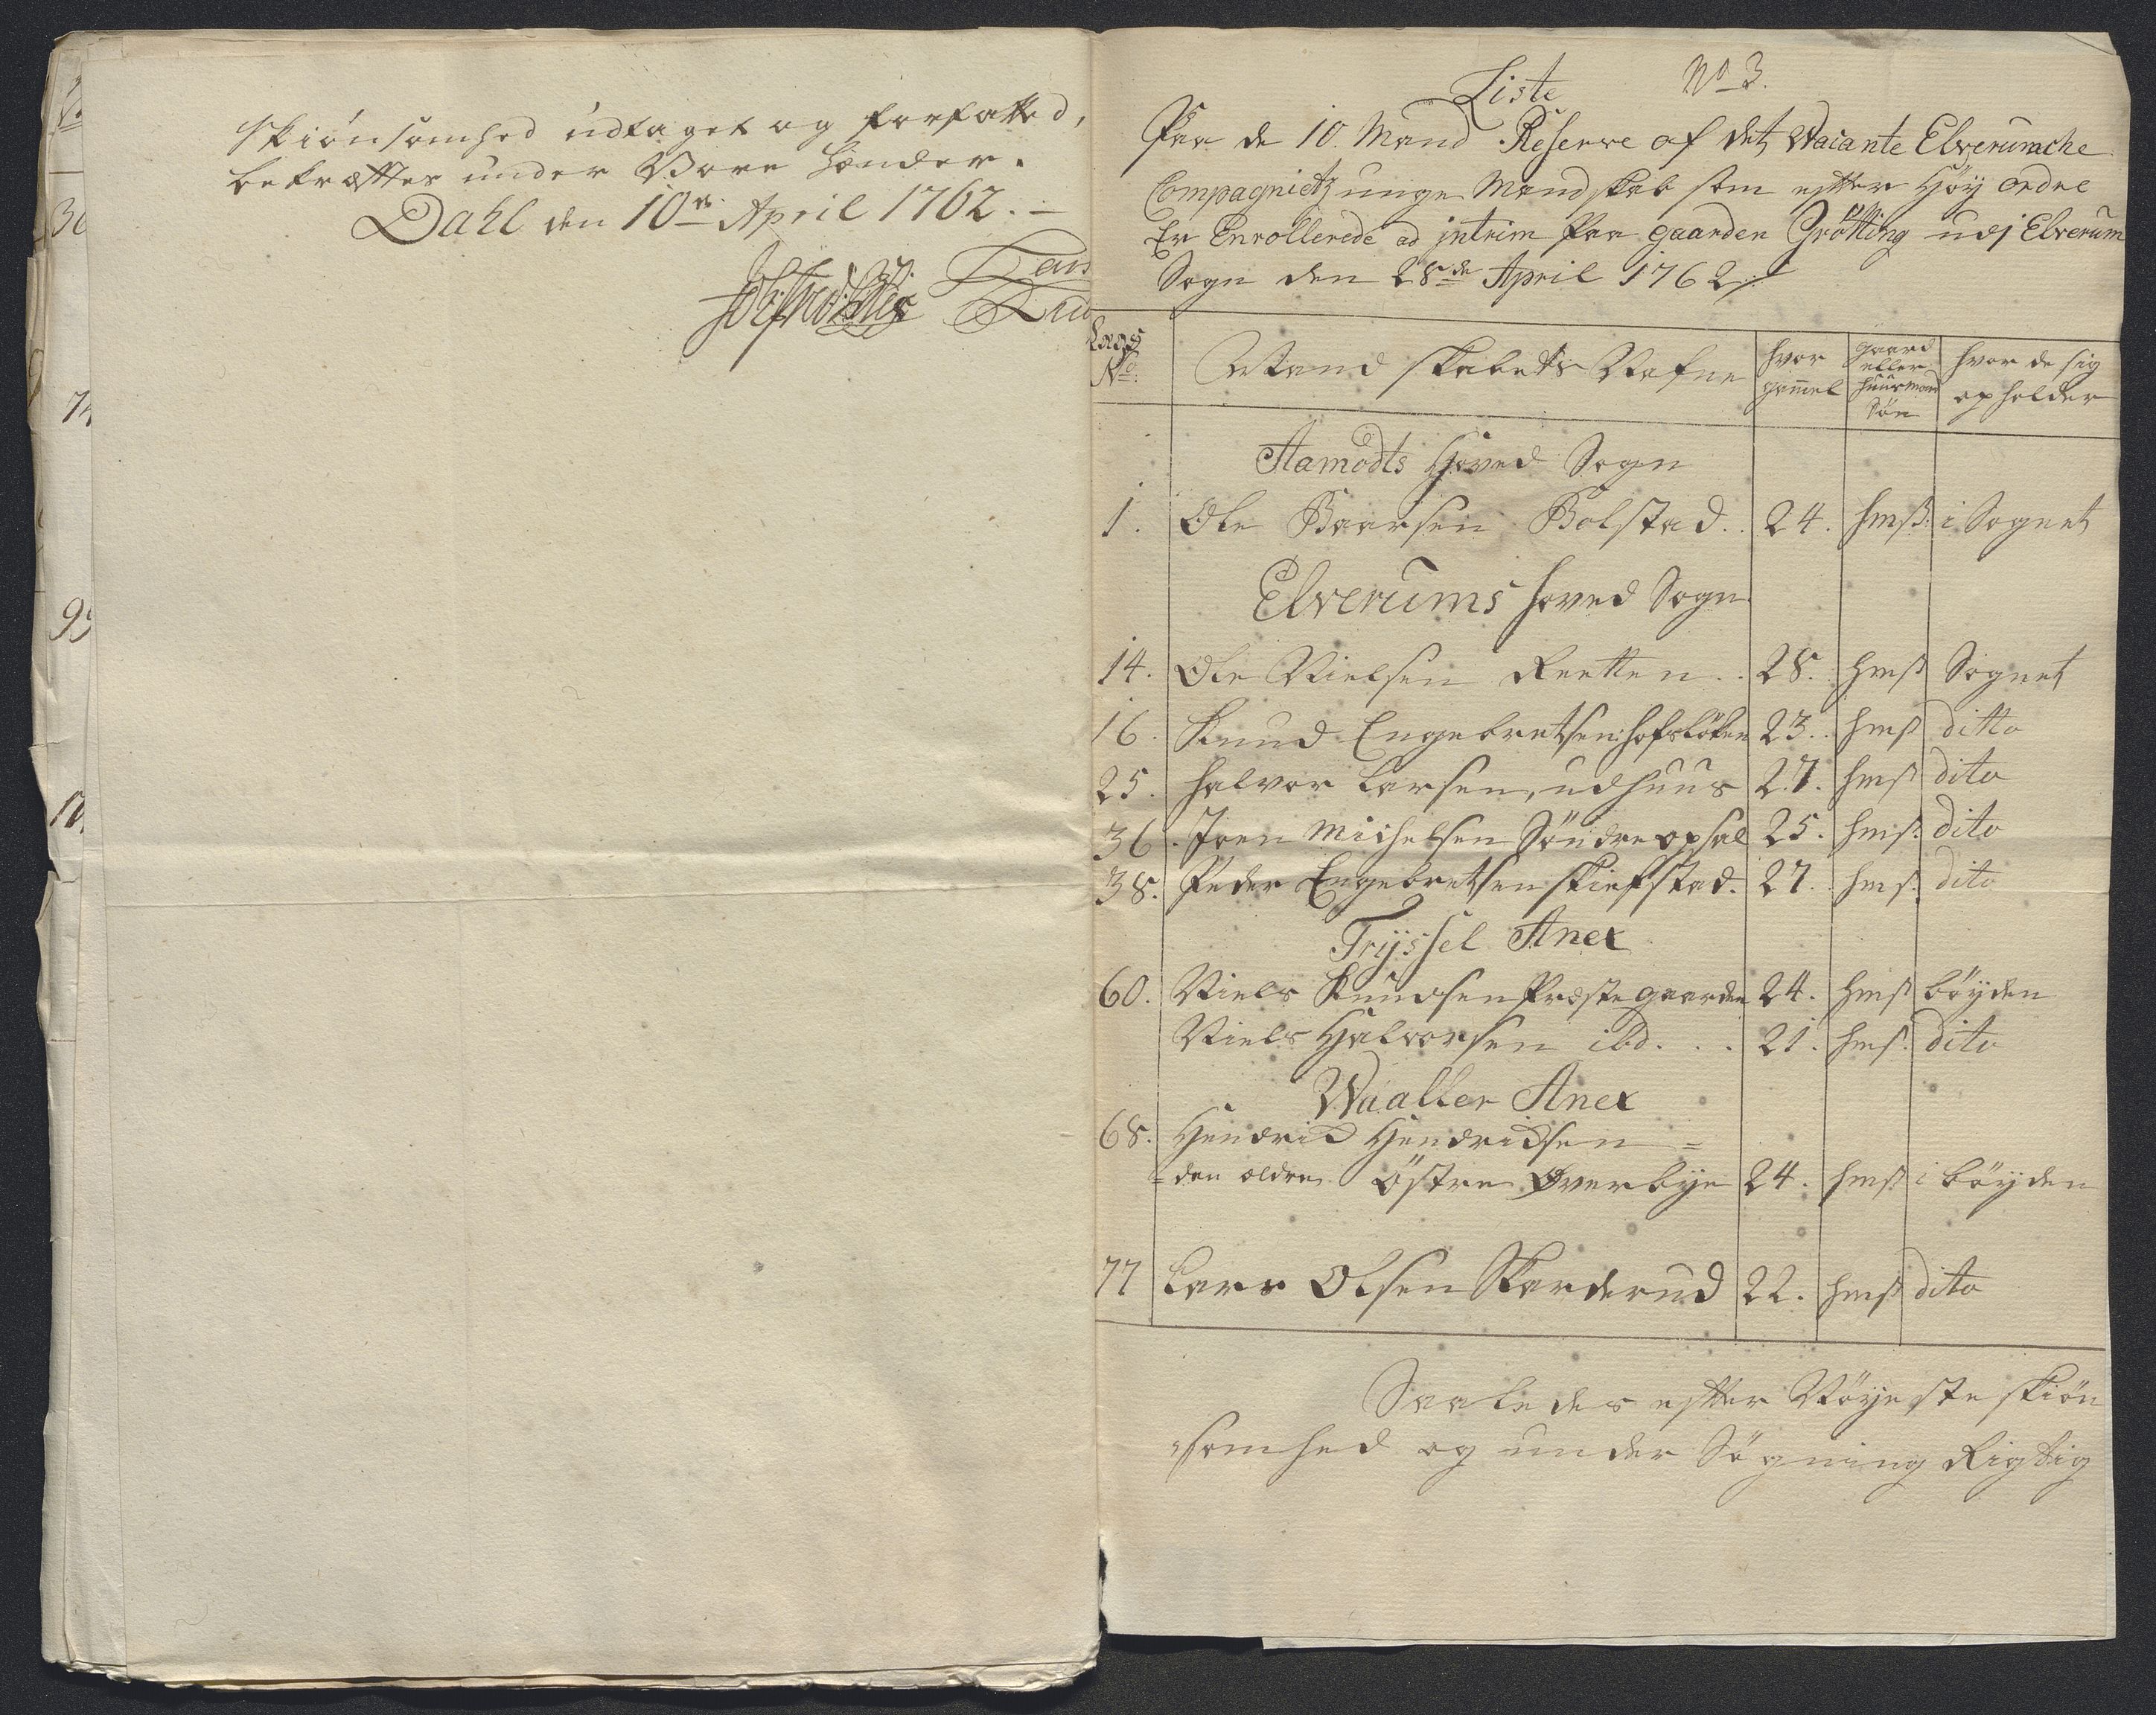 Skiønsomhed udtaget og forfatted,
bekræftes under Vore Hænder.
Dahl den 10de April 1762.
Liste No 3.
Paa de 10. Mand Reserve af det Vacante Elverumsche
Compagnietz unge Mandskab som efter Høy ordre
Er Enrollerede ad intrim paa gaarden Grötting udj Elverum
Sogn den 28de April 1762
Lægs No. Mandskabets Nafne hvor gammel gaard eller huusmand Søn hvor de sig opholder
Aamodts Hoved Sogn
1. Ole Baarsen Bolstad. 24. hmß: i Sognet
Elverums hoved Sogn
14. Ole Nielsen 28. hmß Sognet
16. Knud Engebretsen 23. hmß ditto
25. Halvor Larsen, udhuus 27. hmß dito
36. Joen Michelsen Söndre opsal 25. hmß. dito
38. Peder Engebretsen Skiefstad. 27. hmß. dito
Trÿssel Anex
60. Niels Knudsen Præstegaarden 24. hmß böÿden
Niels Halvorsen ibd. 21. hmß. dito
Waaller Anex
68. Hendric Hendricsen =
= den ældre Östre Øverbÿe 24. hmß i böÿden
77 Lars Olsen Skarderud 22. hmß dito
Saaledes efter Nöÿeste skiön
somhed og under Sögning Rigtig